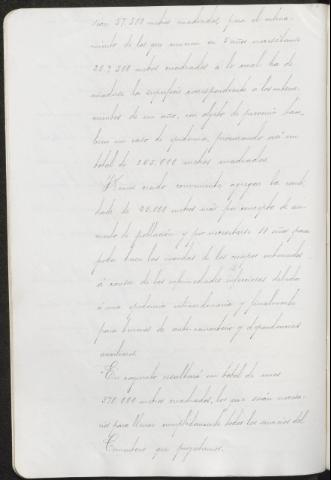 son 57.500 metros cuadrados, para el enterra-
miento de los que mueran en 5 años necesitamos
287.500 metros cuadrados a lo cual ha de
añadirse la superficie correspondiente a los enterra-
mientos de un año, con objeto de prevenir tam-
bien un caso de epidemia, proponiendo así un
total de 345.000 metros cuadrados.
creido conveniente agregar la canti-
dad de 25.000 metros más por concepto de au-
mento de población y por necesitarse 10 años para
poder hacer las mondas de los cuerpos enterrados
á causa de las enfermedades infecciosas debidas
á una epidemia extraordinaria y finalmente
para terrenos de ante-cementerio y dependencias
auxiliares.
En conjunto resultará un total de unos
370.000 metros cuadrados, los que serán necesa-
rios para llenar cumplidamente todos los servicios del
Cementerio que proyectamos.